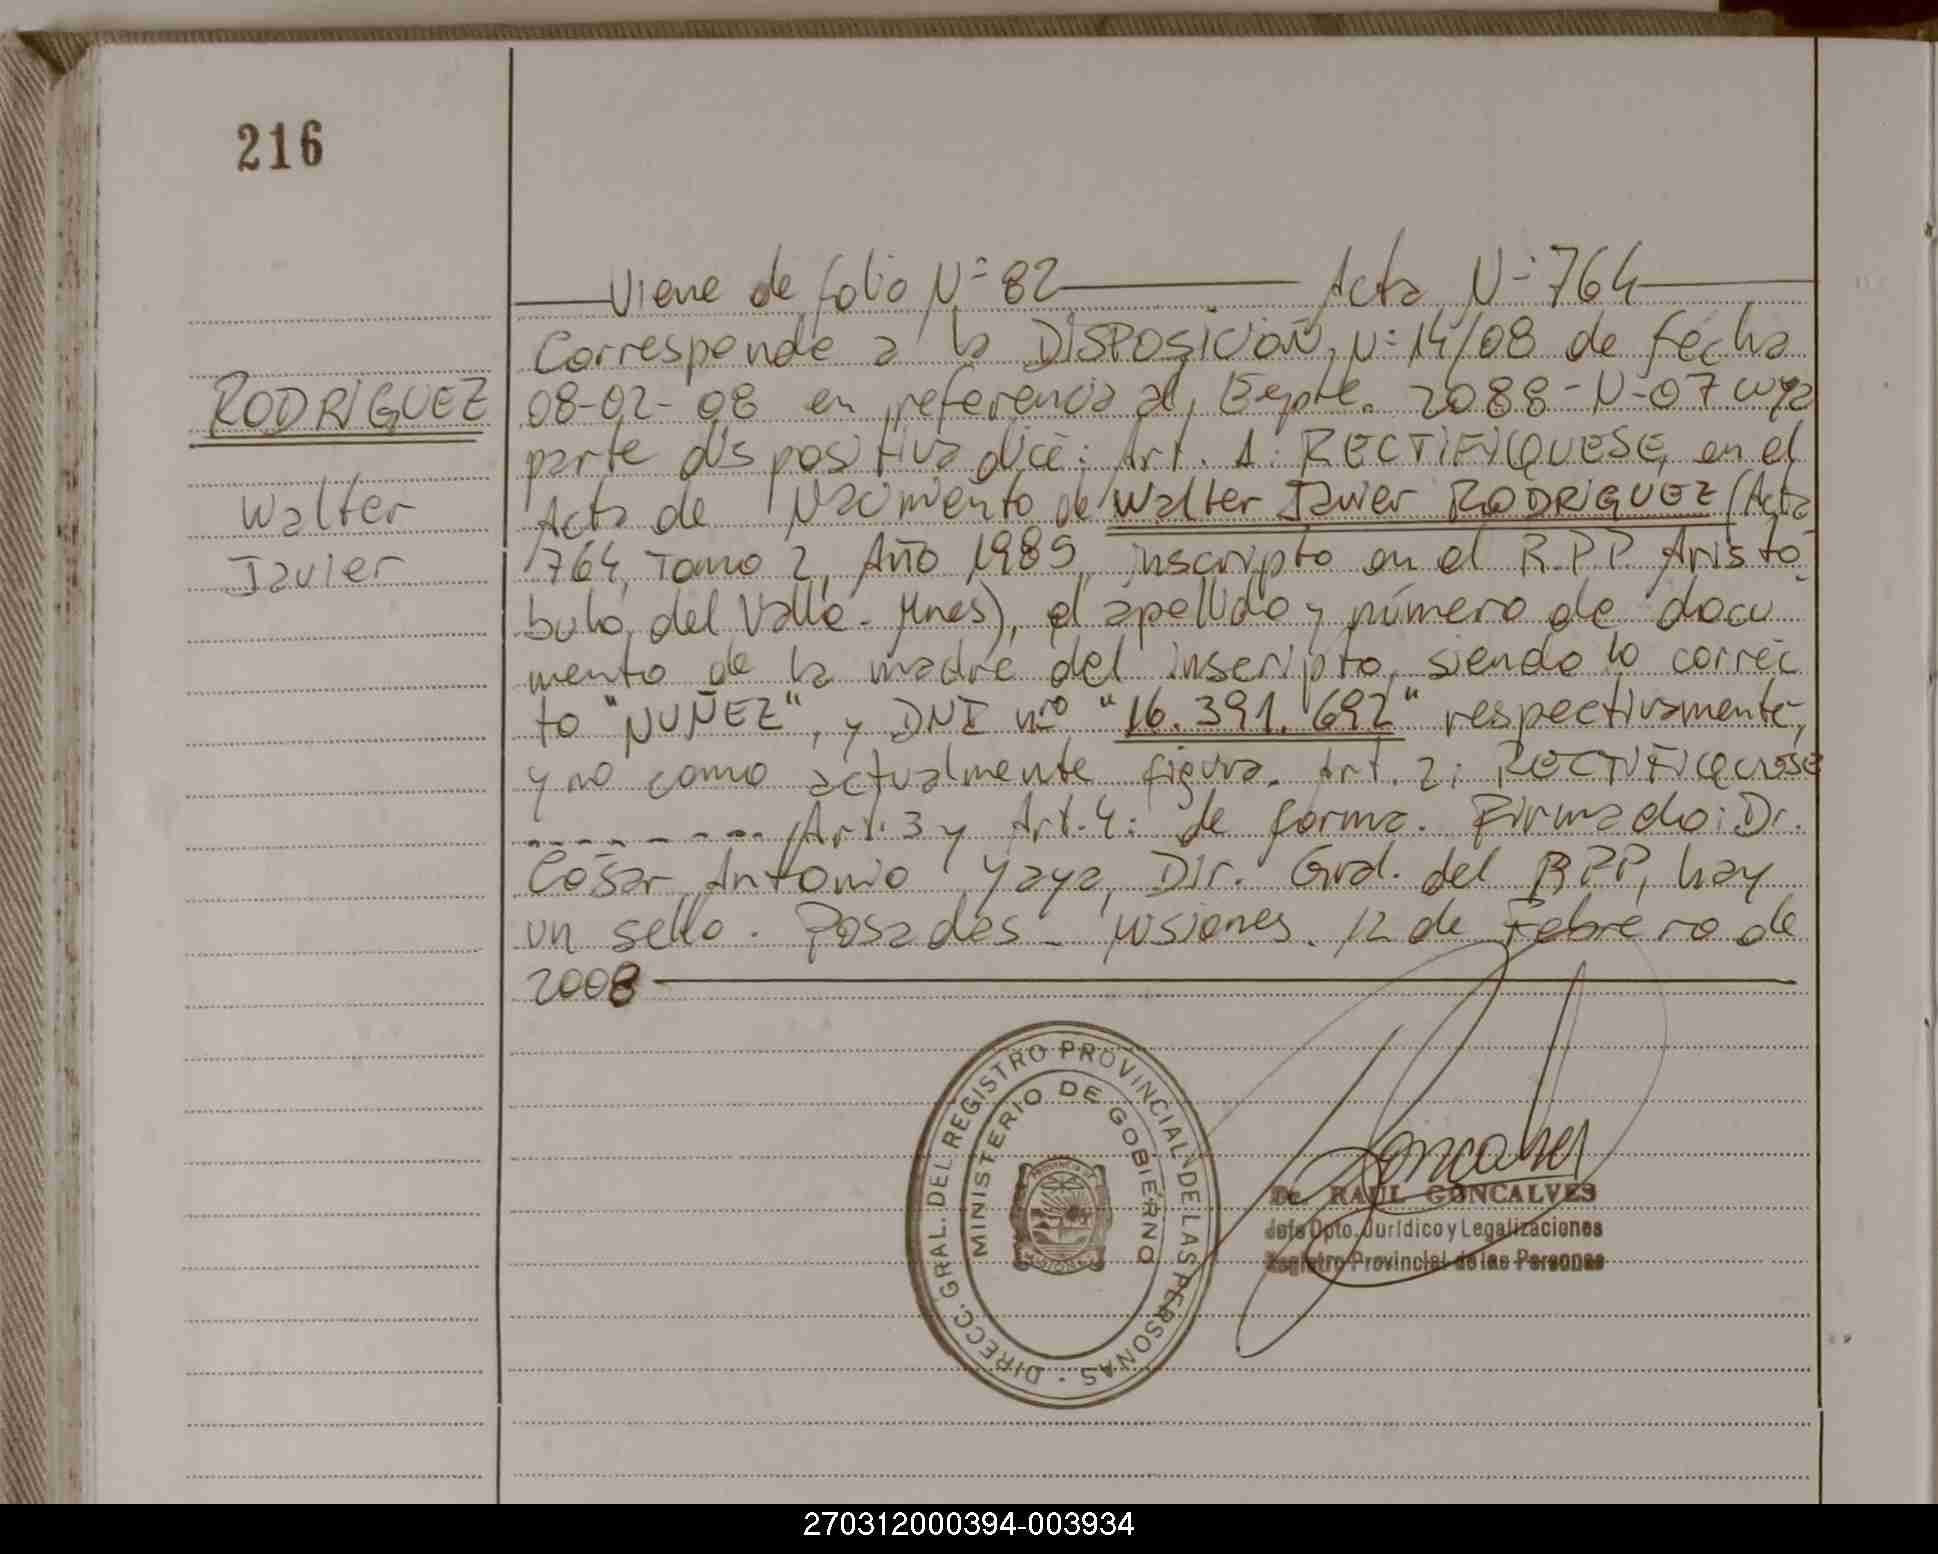 216
Viene de folio N= 82 Acta N= 764
RODRIGUEZ
Walter
Javier
Corresponde a la DISPOSICION, N= 14/08 de fecha
08-02-08 en referencia al, Expte. 2088-N-07 cuya
parte dispositiva dice: Art. 1: RECTIFIQUESE, en el
Acta de Nacimiento de Walter Javier RODRIGUEZ (Acta
764, Tomo 2, Año 1985, inscripto en el R.P.P. Aristó
bulo, del Valle - Mnes), el apellido y número de docu
mento de la madre del inscripto, siendo lo correc
to "NUÑEZ", y DNI nro "16.391.692" respectivamente,
y no como actualmente figura. Art. 2: RECTIFIQUESE
- - - - - - - - - Art. 3 y Art. 4: de forma. Firmado: Dr.
César Antonio Yaya, Dir. Gral. del RPP, hay
un sello. Posadas - Misiones. 12 de Febrero de
2008
DIRECC. GRAL. DEL REGISTRO PROVINCIAL DE LAS PERSONAS
MINISTERIO DE GOBIERNO
PROVINCIA DE
MISIONES
Goncalves
Dr. RAUL GONCALVES
Jefe Dpto. Jurídico y Legalizaciones
Registro Provincial de las Personas
270312000394-003934